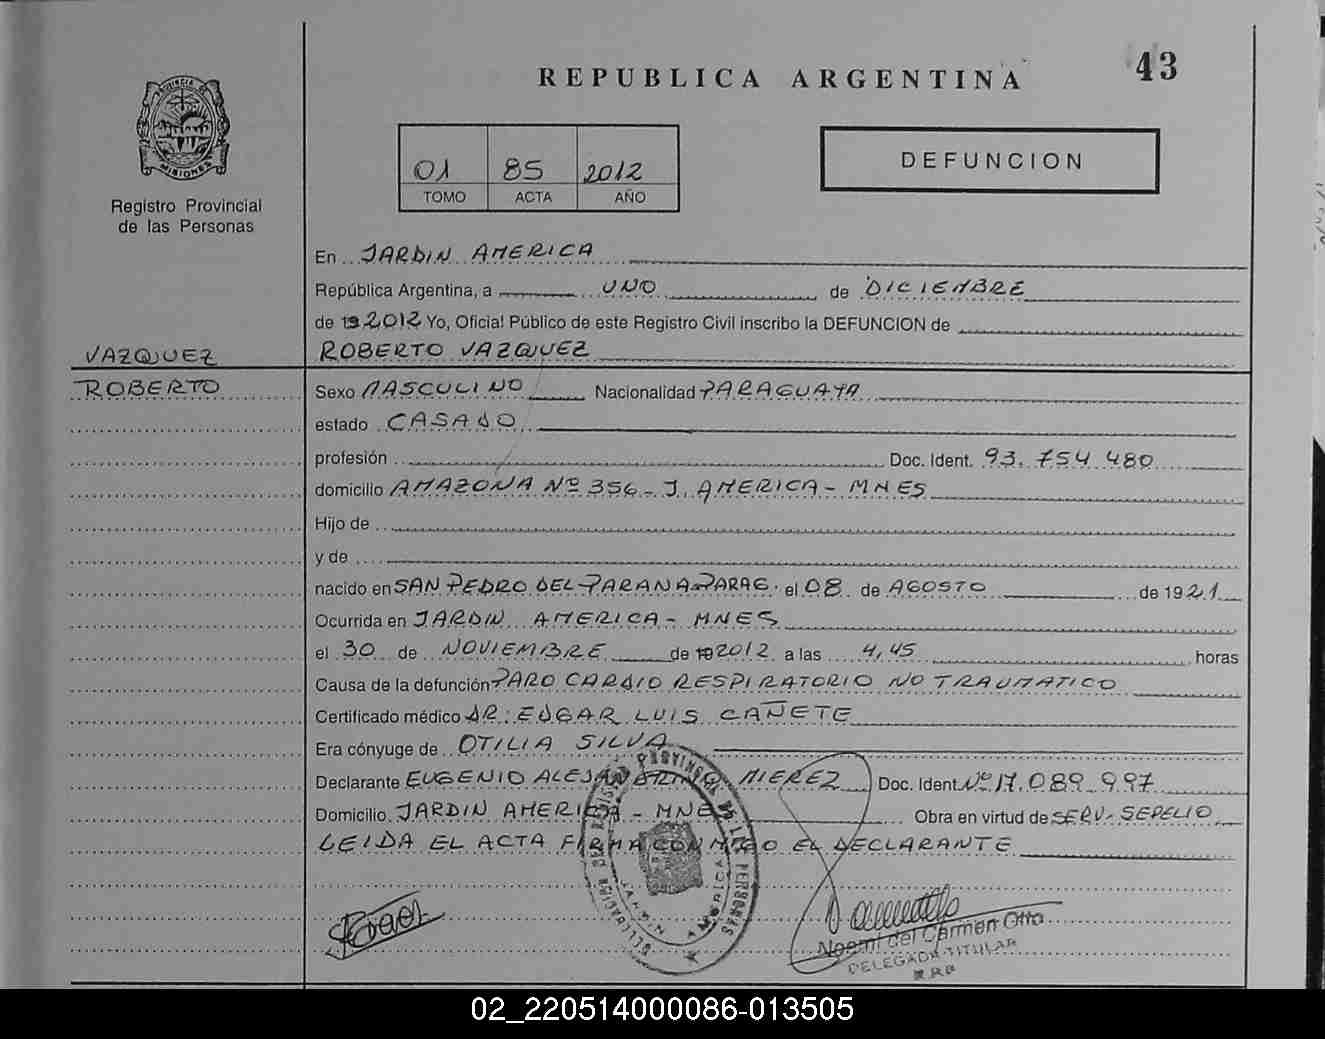 43
REPUBLICA ARGENTINA
PROVINCIA DE
MISIONES
Registro Provincial
de las Personas
01 85 2012
TOMO ACTA AÑO
DEFUNCION
En JARDIN AMERICA
República Argentina, a UNO de DICIEMBRE
de 19 2012 Yo, Oficial Público de este Registro Civil inscribo la DEFUNCION de
ROBERTO VAZQUEZ
VAZQUEZ
ROBERTO
Sexo MASCULINO Nacionalidad PARAGUAYA
estado CASADO
profesión Doc. Ident. 93.754 480
domicilio AMAZONA Nº 356 - J. AMERICA - MNES
Hijo de
y de
nacido en SAN PEDRO DEL PARANA-PARAG. el 08 de AGOSTO de 1921
Ocurrida en JARDIN AMERICA - MNES
el 30 de NOVIEMBRE de 19 2012 a las 4,45 horas
Causa de la defunción PARO CARDIO RESPIRATORIO NO TRAUMATICO
Certificado médico DR: EDGAR LUIS CAÑETE
Era cónyuge de OTILIA SILVA
Declarante EUGENIO ALEJANDRINO MIEREZ Doc. Ident Nº 17.089.997
Domicilio JARDIN AMERICA - MNES Obra en virtud de SERV. SEPELIO
LEIDA EL ACTA FIRMA CONMIGO EL DECLARANTE
Noemi del Carmen Otto
DELEGADA TITULAR
R.R.P
02_220514000086-013505